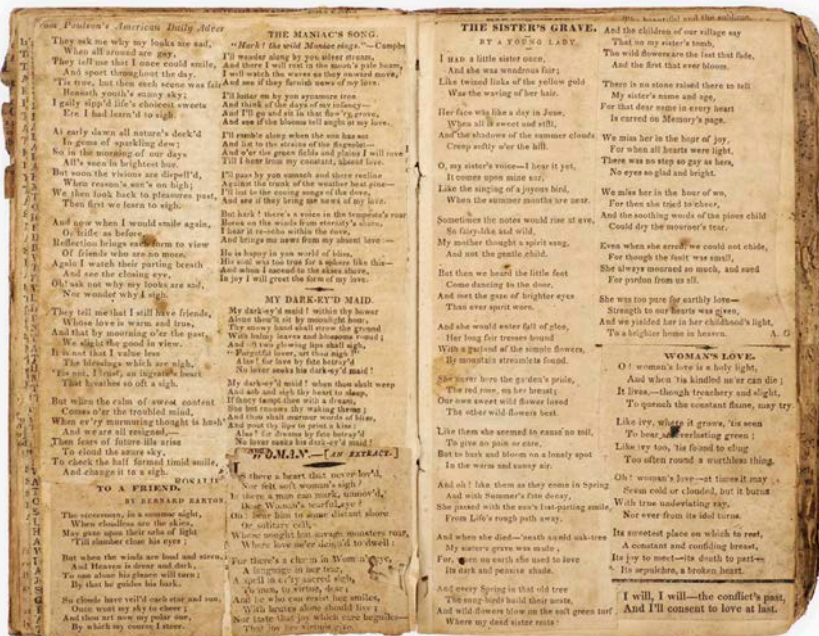 From Poulson's American Daily Adver
They ask me why my looks are sad,
When all around are gay,
They tell me that I once could smile,
And sport throughout the day.
'Tis true, but then each scene was fair
Beneath youth's sunny sky;
I gaily sipp'd life's choicest sweets
Ere I had learn'd to sigh.
At early dawn all nature's deck'd
In gems of sparkling dew;
So in the morning of our days
All's seen in brightest hue.
But soon the visions are dispell'd,
When reason's sun's on high;
We then look back to pleasures past,
Then first we learn to sigh.
And now when I would smile again,
Or trifle as before,
Reflection brings each form to view
Of friends who are no more.
Again I watch their parting breath
And see the closing eye,
Oh! ask not why my looks are sad,
Nor wonder why I sigh.
They tell me that I still have friends,
Whose love is warm and true,
And that by mourning o'er the past,
We slight the good in view.
It is not that I value less
The blessings which are nigh,
'Tis not, I trust, an ingrate's heart
That breathes so oft a sigh.
But when the calm of sweet content
Comes o'er the troubled mind,
When ev'ry murmuring thought is hush'd
And we are all resigned,—
Then fears of future ills arise
To cloud the azure sky,
To check the half formed timid smile,
And change it to a sigh.
ROSALIE
TO A FRIEND.
BY BERNARD BARTON.
The steersman, in a summer night,
When cloudless are the skies,
May gaze upon their orbs of light
'Till slumber close his eyes;
But when the winds are loud and stern,
And Heaven is drear and dark,
To one alone his glance will turn;
By that he guides his bark.
So clouds have veil'd each star and sun,
Once wont my sky to cheer;
And thou art now my polar one,
By which my course I steer.
THE MANIAC'S SONG.
"Hark! the wild Maniac sings."—Campb
I'll wander along by yon silver stream,
And there I will rest in the moon's pale beam,
I will watch the waves as they onward move,
And see if they furnish news of my love.
I'll loiter on by yon sycamore tree
And think of the days of my infancy—
And I'll go and sit in that flow'ry grove,
And see if the blooms tell aught of my love.
I'll ramble along when the sun has set
And list to the strains of the flageolet—
And o'er the green fields and plains I will rove
Till I hear from my constant, absent love.
I'll pass by yon sumach and there recline
Against the trunk of the weather beat pine—
I'll list to the cooing songs of the dove,
And see if they bring me news of my love.
But hark! there's a voice in the tempest's roar
Borne on the winds from eternity's shore,
I hear it re-echo within the cove,
And brings me news from my absent love:—
He is happy in yon world of bliss,
His soul was too true for a sphere like this—
And when I ascend to the skies above,
In joy I will greet the form of my love.
MY DARK-EY'D MAID.
My dark-ey'd maid! within thy bower
Alone thou'lt sit by moonlight hour,
Thy snowy hand shall strew the ground
With balmy leaves and blossoms round;
And oft two glowing lips shall sigh,
"Forgetful lover, art thou nigh?"
Alas! for love by fate betray'd
No lover seeks his dark-ey'd maid!
My dark-ey'd maid! when thou shalt weep
And sob and sigh thy heart to sleep,
If fancy tempt thee with a dream,
She but renews thy waking theme;
And thou shalt murmur words of bliss,
And pout thy lips to print a kiss;
Alas! for dreams by fate betray'd
No lover seeks his dark-ey'd maid!
WOMAN.—[AN EXTRACT.]
Is there a heart that never lov'd,
Nor felt soft woman's sigh?
Is there a man can mark, unmov'd,
Dear Woman's tearful eye?
Oh! bear him to some distant shore
Or solitary cell,
Where nought but savage monsters roar,
Where love ne'er deign'd to dwell:
For there's a charm in Woman's eye,
A language in her tear,
A spell in ev'ry sacred sigh,
To man, to virtue, dear;
And he who can resist her smiles,
With brutes alone should live;
Nor taste that joy which care beguiles—
That joy her virtues give.
THE SISTER'S GRAVE.
BY A YOUNG LADY.
I HAD a little sister once,
And she was wondrous fair;
Like twined links of the yellow gold
Was the waving of her hair.
Her face was like a day in June,
When all is sweet and still,
And the shadows of the summer clouds
Creep softly o'er the hill.
O, my sister's voice—I hear it yet,
It comes upon mine ear,
Like the singing of a joyous bird,
When the summer months are near.
Sometimes the notes would rise at eve,
So fairy-like and wild,
My mother thought a spirit sang,
And not the gentle child.
But then we heard the little foot
Come dancing to the door,
And met the gaze of brighter eyes
Than ever spirit wore.
And she would enter full of glee,
Her long fair tresses bound
With a garland of the simple flowers,
By mountain streamlets found.
She never bore the garden's pride,
The red rose, on her breast;
Our own sweet wild flower loved
The other wild flowers best.
Like them she seemed to cause no toil,
To give no pain or care,
But to bask and bloom on a lonely spot
In the warm and sunny air.
And oh! like them as they come in Spring
And with Summer's fate decay,
She passed with the sun's last-parting smile,
From Life's rough path away.
And when she died—'neath an old oak-tree
My sister's grave was made;
For, when on earth she used to love
Its dark and pensive shade.
And every Spring in that old tree
The song-birds build their nests,
And wild flowers blow on the soft green turf
Where my dead sister rests:
And the children of our village say
That on my sister's tomb,
The wild flowers are the last that fade,
And the first that ever bloom.
There is no stone raised there to tell
My sister's name and age,
For that dear name in every heart
Is carved on Memory's page.
We miss her in the hour of joy,
For when all hearts were light,
There was no step so gay as hers,
No eyes so glad and bright.
We miss her in the hour of wo,
For then she tried to cheer,
And the soothing words of the pious child
Could dry the mourner's tear.
Even when she erred, we could not chide,
For though the fault was small,
She always mourned so much, and sued
For pardon from us all.
She was too pure for earthly love—
Strength to our hearts was given,
And we yielded her in her childhood's light,
To a brighter home in heaven.
A. G
WOMAN'S LOVE.
O! woman's love is a holy light,
And when 'tis kindled ne'er can die;
It lives,—though treachery and slight,
To quench the constant flame, may try.
Like ivy, where it grows, 'tis seen
To bear an everlasting green;
Like ivy too, 'tis found to cling
Too often round a worthless thing.
Oh! woman's love—at times it may
Seem cold or clouded, but it burns
With true undeviating ray,
Nor ever from its idol turns.
Its sweetest place on which to rest,
A constant and confiding breast,
Its joy to meet—its death to part—
Its sepulchre, a broken heart.
I will, I will—the conflict's past,
And I'll consent to love at last.